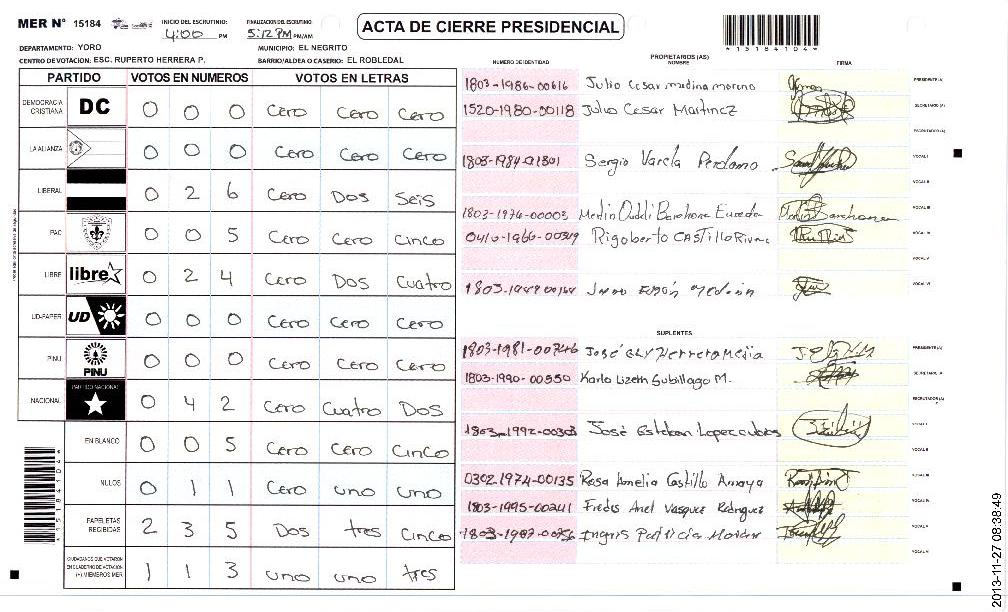 MER Nº 15184
INICIO DEL ESCRUTINIO
4:00 PM
FINALIZACION DEL ESCRUTINIO
5:12 PM PM/AM
ACTA DE CIERRE PRESIDENCIAL
*15184104*
DEPARTAMENTO: YORO
MUNICIPIO: EL NEGRITO
CENTRO DE VOTACION: ESC. RUPERTO HERRERA P.
BARRIO/ALDEA O CASERIO: EL ROBLEDAL
PARTIDO VOTOS EN NUMEROS VOTOS EN LETRAS
DEMOCRACIA CRISTIANA DC 0 0 0 Cero Cero Cero
LA ALIANZA 0 0 0 Cero Cero Cero
LIBERAL 0 2 6 Cero Dos Seis
PAC 0 0 5 Cero Cero Cinco
LIBRE libre 0 2 4 Cero Dos Cuatro
UD-FAPER UD 0 0 0 Cero Cero Cero
PINU PINU 0 0 0 Cero Cero Cero
NACIONAL PARTIDO NACIONAL 0 4 2 Cero Cuatro Dos
EN BLANCO 0 0 5 Cero Cero Cinco
NULOS 0 1 1 Cero uno uno
PAPELETAS RECIBIDAS 2 3 5 Dos tres Cinco
CIUDADANOS QUE VOTARON EN CUADERNO DE VOTACION (+) MIEMBROS MER 1 1 3 uno uno tres
*15184104*
PROPIETARIOS (AS)
NUMERO DE IDENTIDAD NOMBRE FIRMA
1803-1986-00616 Julio Cesar medina moreno PRESIDENTE(A)
1520-1980-00118 Julio Cesar Martinez SECRETARIO (A)
ESCRUTADOR (A)
1803-1984-01801 Sergio Varela Perdomo VOCAL I
VOCAL II
1803-1974-00003 Barahona VOCAL III
Rigoberto CASTillo Rivera VOCAL IV
VOCAL V
VOCAL VI
SUPLENTES
1803-1981-00746 José Ely Herrera Mejia PRESIDENTE(A)
1803-1990-00550 Karla Lizeth Gubillago M. SECRETARIO (A)
ESCRUTADOR (A)
1803-1992-00303 José Esteban Lopez VOCAL I
VOCAL II
0302-1974-00135 Rosa Amelia Castillo Amaya VOCAL III
1803-1995-00241 Fredis Ariel Vasquez Rodriguez VOCAL IV
Ingris Patricia VOCAL V
VOCAL VI
2013-11-27 08:38:49